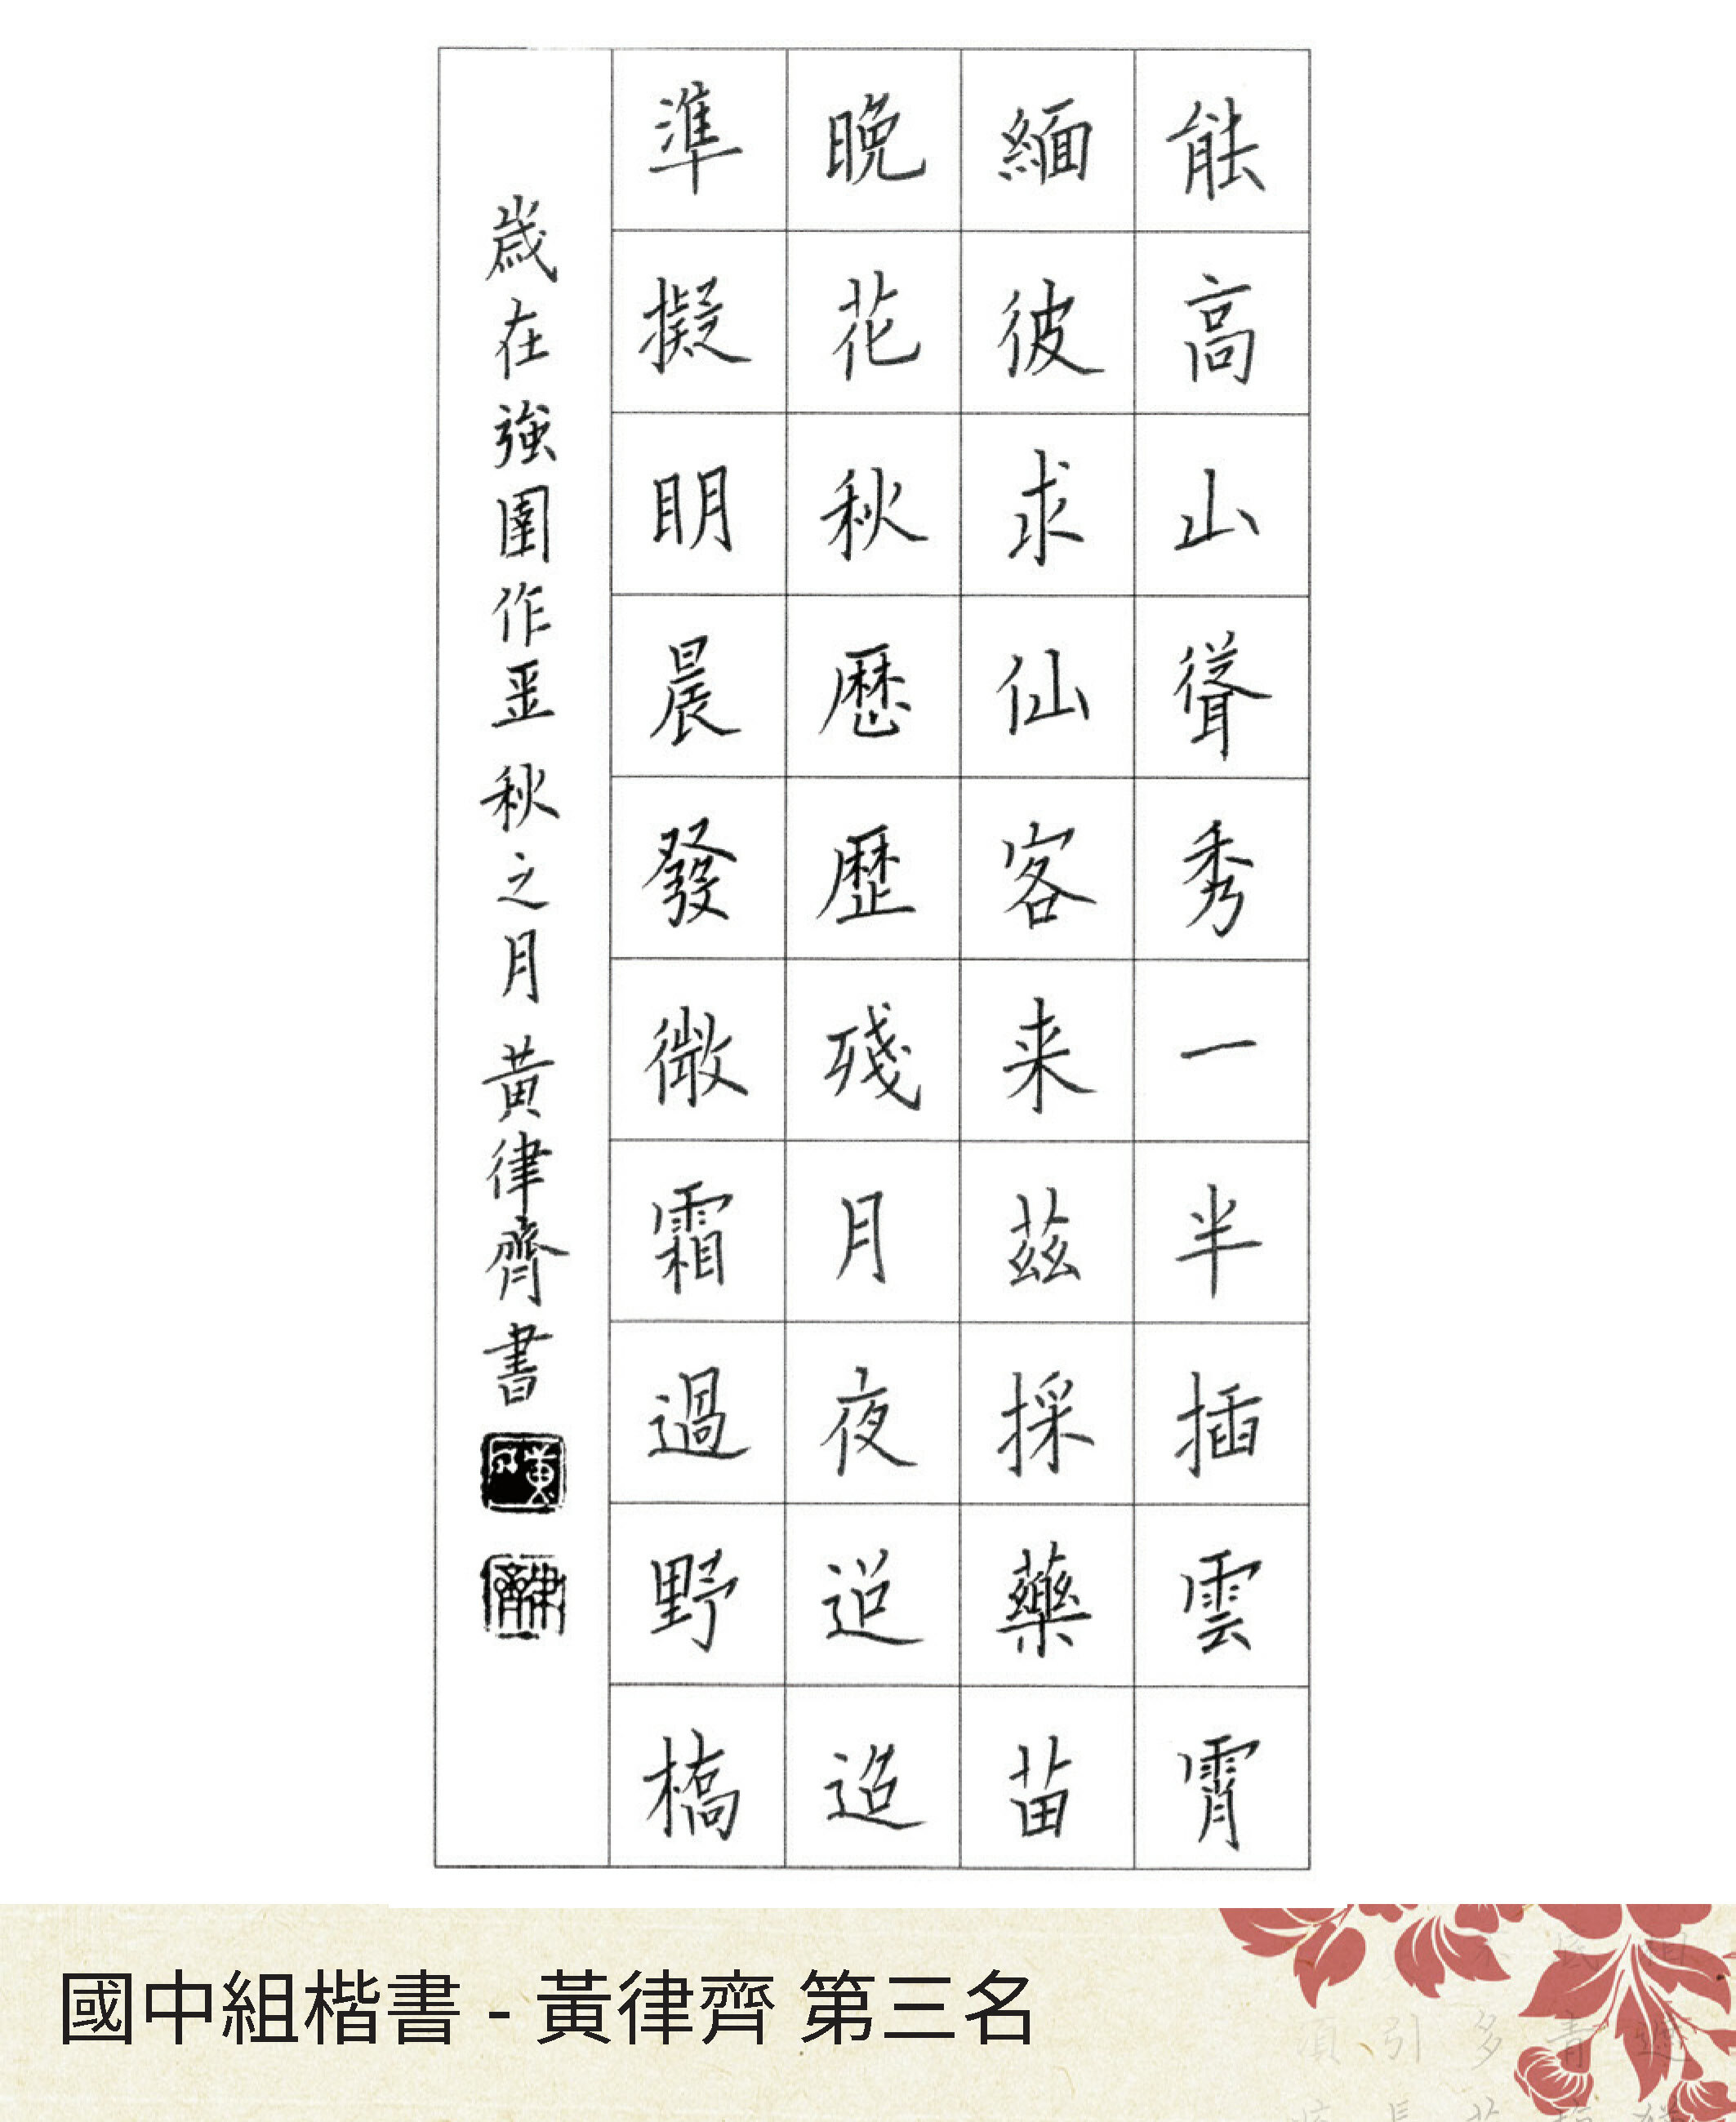 能高山聳秀一半插雲霄
緬彼求仙客来茲採藥苗
晚花秋歴歴殘月夜迢迢
準擬眀晨發微霜過野橋
歲在強圉作噩秋之月黃律齊書
黃印
律齊
國中組楷書 - 黃律齊 第三名